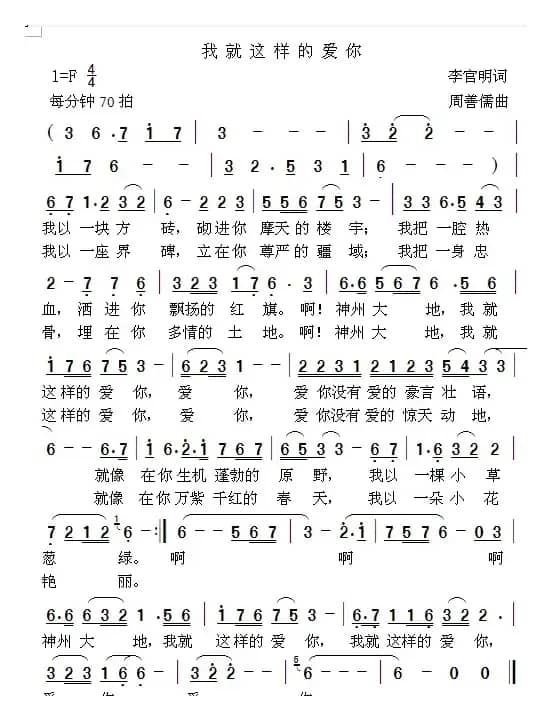 我就这样的爱你
1=F 4/4 李官明词
每分钟70拍 周善儒曲
( 3 6·7 1 7 | 3 - - - | 3 2 2 - -
1 7 6 - - | 3 2·5 3 1 | 6 - - - )
6 7 1·2 3 2 | 6 - 2 2 3 | 5 5 6 7 5 | 3 - 3 3 6·5 4 3
我以一块方 砖，砌进你 摩天的楼 宇；我把一腔热
我以一座界 碑，立在你 尊严的疆 域；我把一身忠
2 - 7 7 6 | 3 2 3 1 7 | 3 - - 6·6 5 6 7 6·7 5 6
血，洒进你 飘扬的红 旗。啊！神州大 地，我就
骨，埋在你 多情的土 地。啊！神州大 地，我就
1 7 6 7 5 3 - | 6 2 3 1 - | 2 2 3 1 2 1 2 3 5 4 3 3
这样的爱 你， 爱 你， 爱你没有爱的豪言壮 语，
这样的爱 你， 爱 你， 爱你没有爱的惊天动 地，
6 - - 6·7 | 1 6·2·1 7 6 7 | 6 5 3 3 - 6 7 | 1·6 3 2 2
就像 在你生机 蓬勃的 原 野， 我以 一棵小 草
就像 在你万紫 千红的 春 天， 我以 一朵小 花
7 2 1 2 1 6 - :‖ 6 - - 5 6 7 | 3 - 2·1 | 7 5 6 7 6 - 0 3
葱 绿。 啊 啊 啊
艳 丽。
6·6 6 3 2 1 ·5 6 | 1 7 6 7 5 3 · | 6·7 1 1 6 6 6 -
神州大 地，我就 这样的爱 你，我就这样的爱 你，
3 2 2 3 1 6 6 - | 3 2 2 - - | 5 6 - - - | 6 - 0 0 ‖